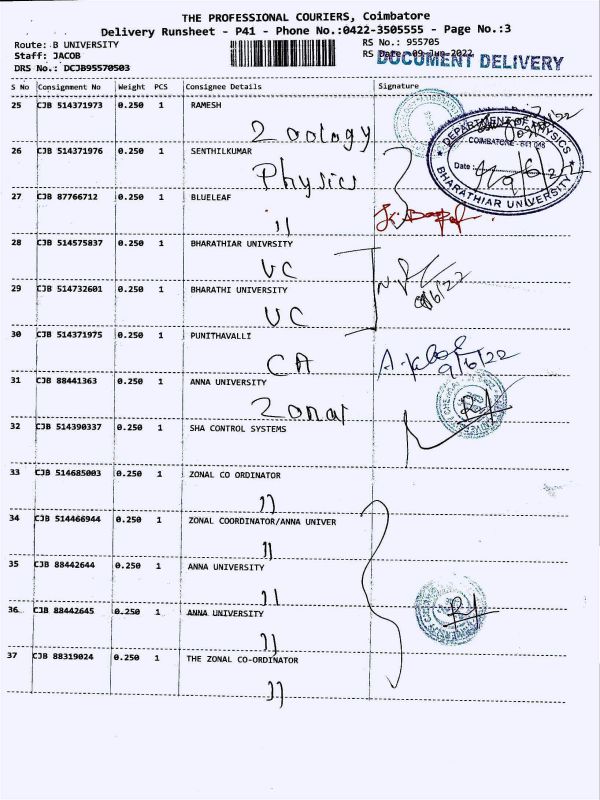 THE PROFESSIONAL COURIERS, Coimbatore
Delivery Runsheet - P41 - Phone No.:0422-3505555 - Page No.:3
Route: B UNIVERSITY RS No.: 955705
Staff: JACOB RS Date: 09-Jun-2022
DOCUMENT DELIVERY
DRS No.: DCJB95570503
S No Consignment No Weight PCS Consignee Details Signature
25 CJB 514371973 0.250 1 RAMESH
Zoology
26 CJB 514371976 0.250 1 SENTHILKUMAR
Physics
DEPARTMENT OF PHYSICS
COIMBATORE - 641 046
Date :
BHARATHIAR UNIVERSITY
27 CJB 87766712 0.250 1 BLUELEAF
11
28 CJB 514575837 0.250 1 BHARATHIAR UNIVRSITY
VC
29 CJB 514732601 0.250 1 BHARATHI UNIVERSITY
VC
30 CJB 514371975 0.250 1 PUNITHAVALLI
CA
9/6/22
31 CJB 88441363 0.250 1 ANNA UNIVERSITY
Zonal
32 CJB 514390337 0.250 1 SHA CONTROL SYSTEMS
33 CJB 514685003 0.250 1 ZONAL CO ORDINATOR
11
34 CJB 514466944 0.250 1 ZONAL COORDINATOR/ANNA UNIVER
11
35 CJB 88442644 0.250 1 ANNA UNIVERSITY
11
36 CJB 88442645 0.250 1 ANNA UNIVERSITY
11
37 CJB 88319024 0.250 1 THE ZONAL CO-ORDINATOR
11